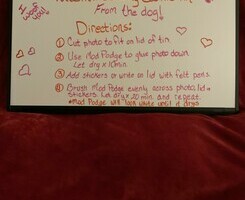 I woof you!
From the dog!
Directions:
① Cut photo to fit on lid of tin
② Use Mod Podge to glue photo down.
Let dry x 10 min.
③ Add stickers or write on lid with felt pens.
④ Brush Mod Podge evenly across photo, lid &
stickers. Let dry x 20 min. and repeat.
*Mod Podge will look white until it dries